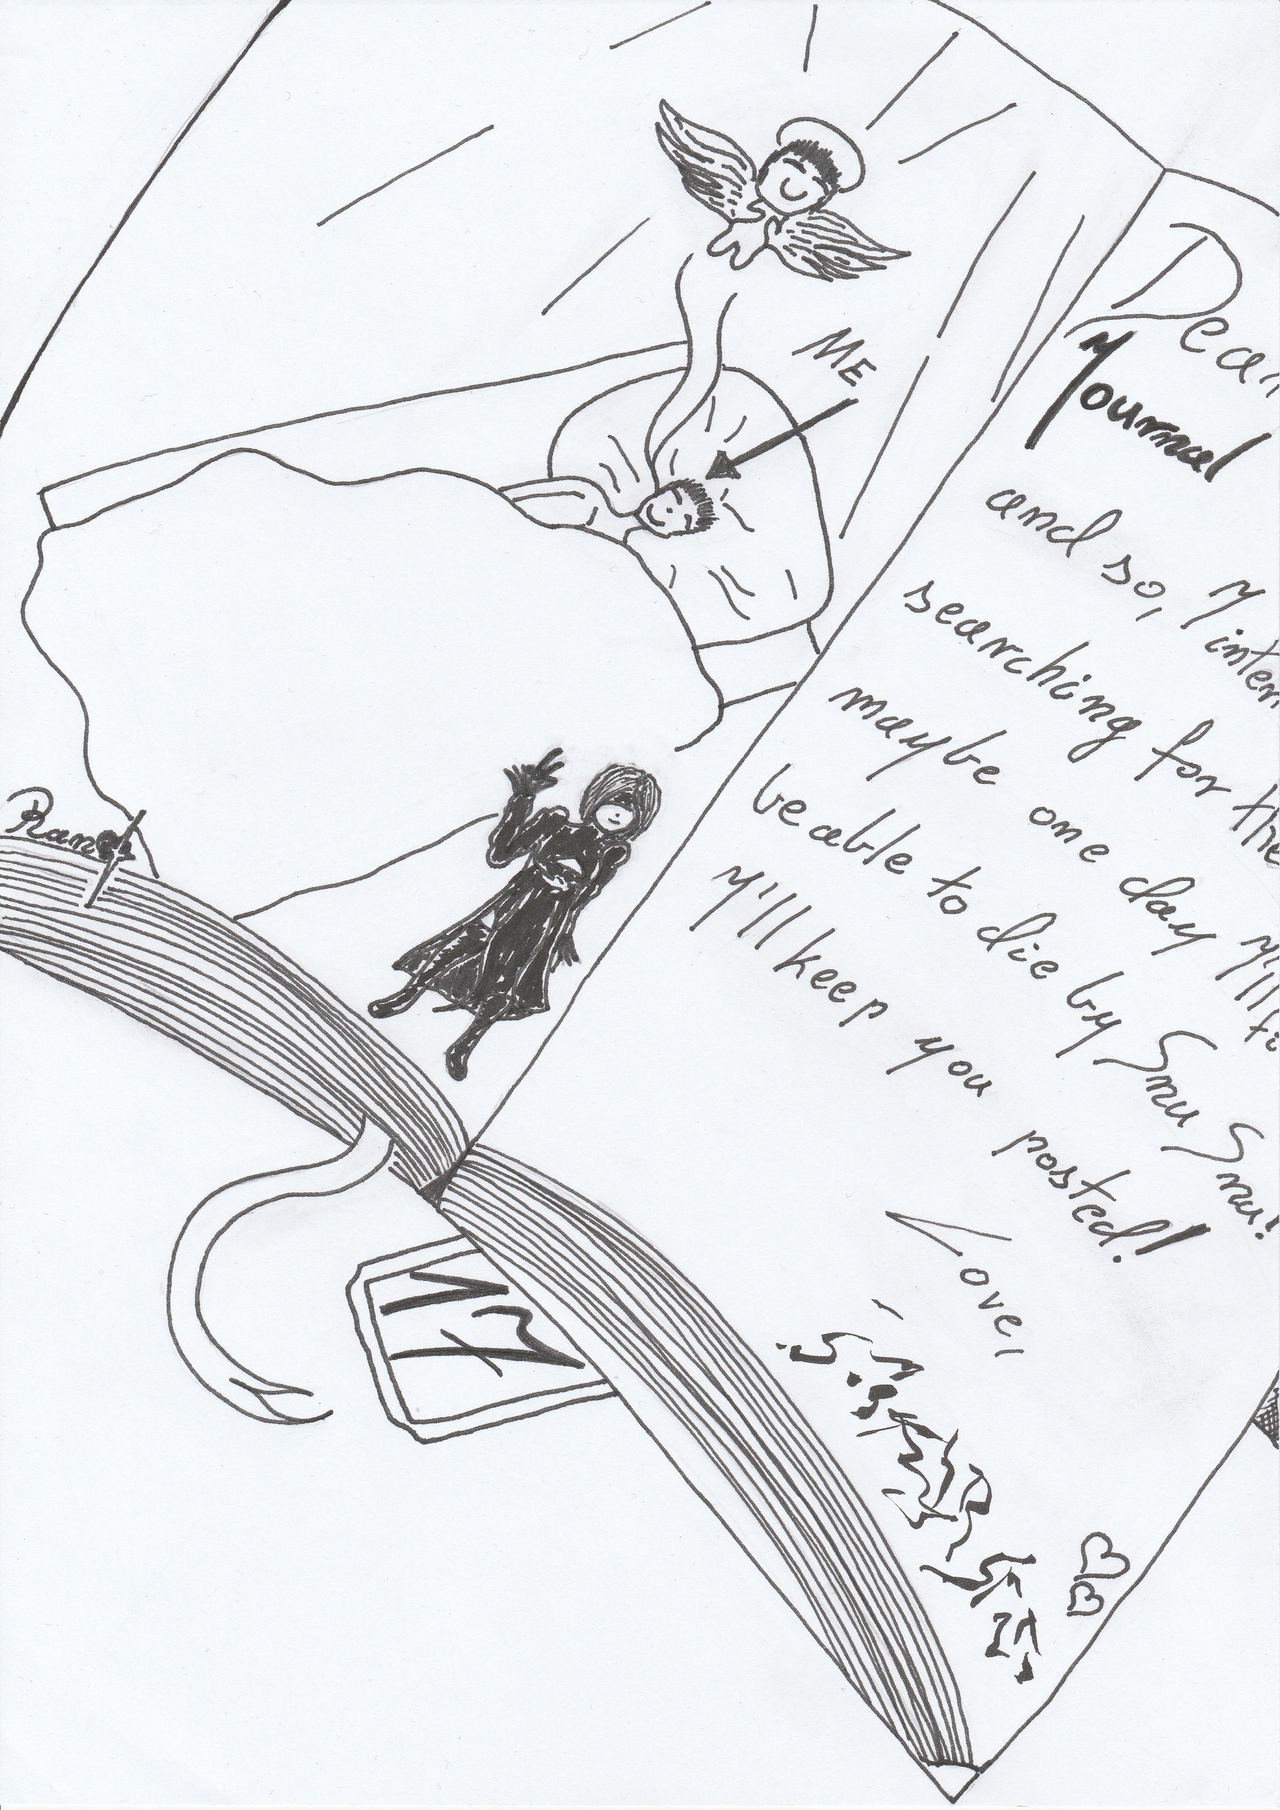 ME
Dear
Journal
and so, I inten
searching for the
maybe one day I'll
be able to die by Snu Snu!
I'll keep you posted!
Love,